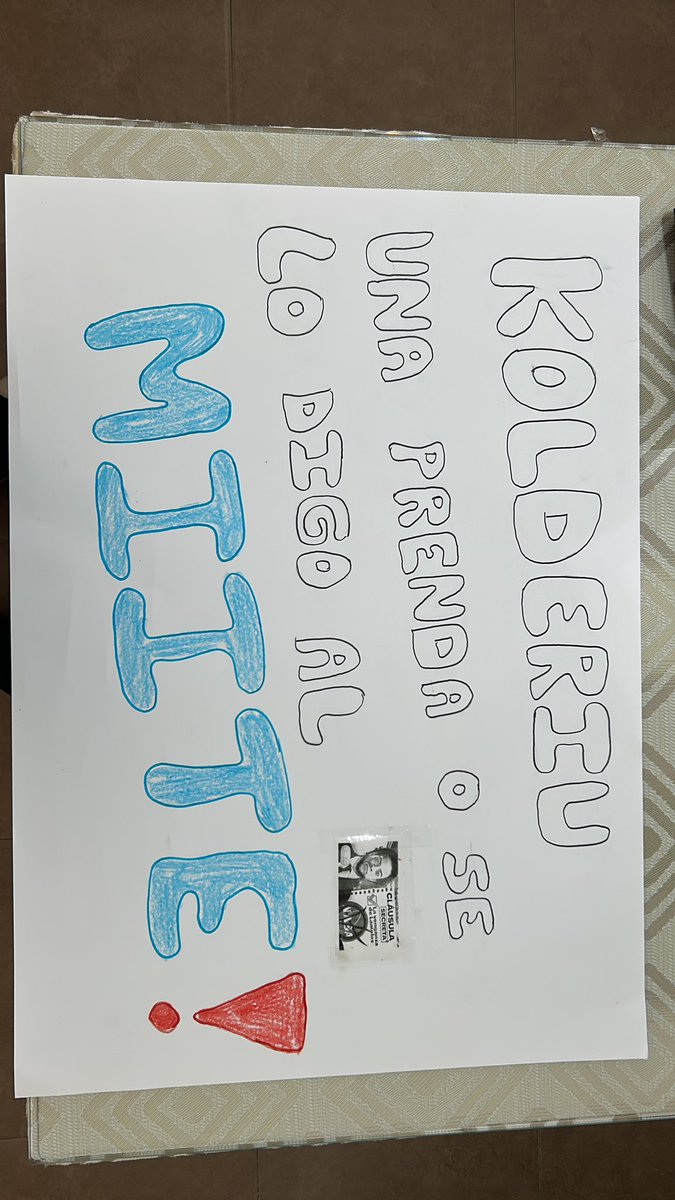 KOLDERIU
UNA PRENDA O SE
LO DIGO AL
MIITE!
CLÁUSULA
SECRETA